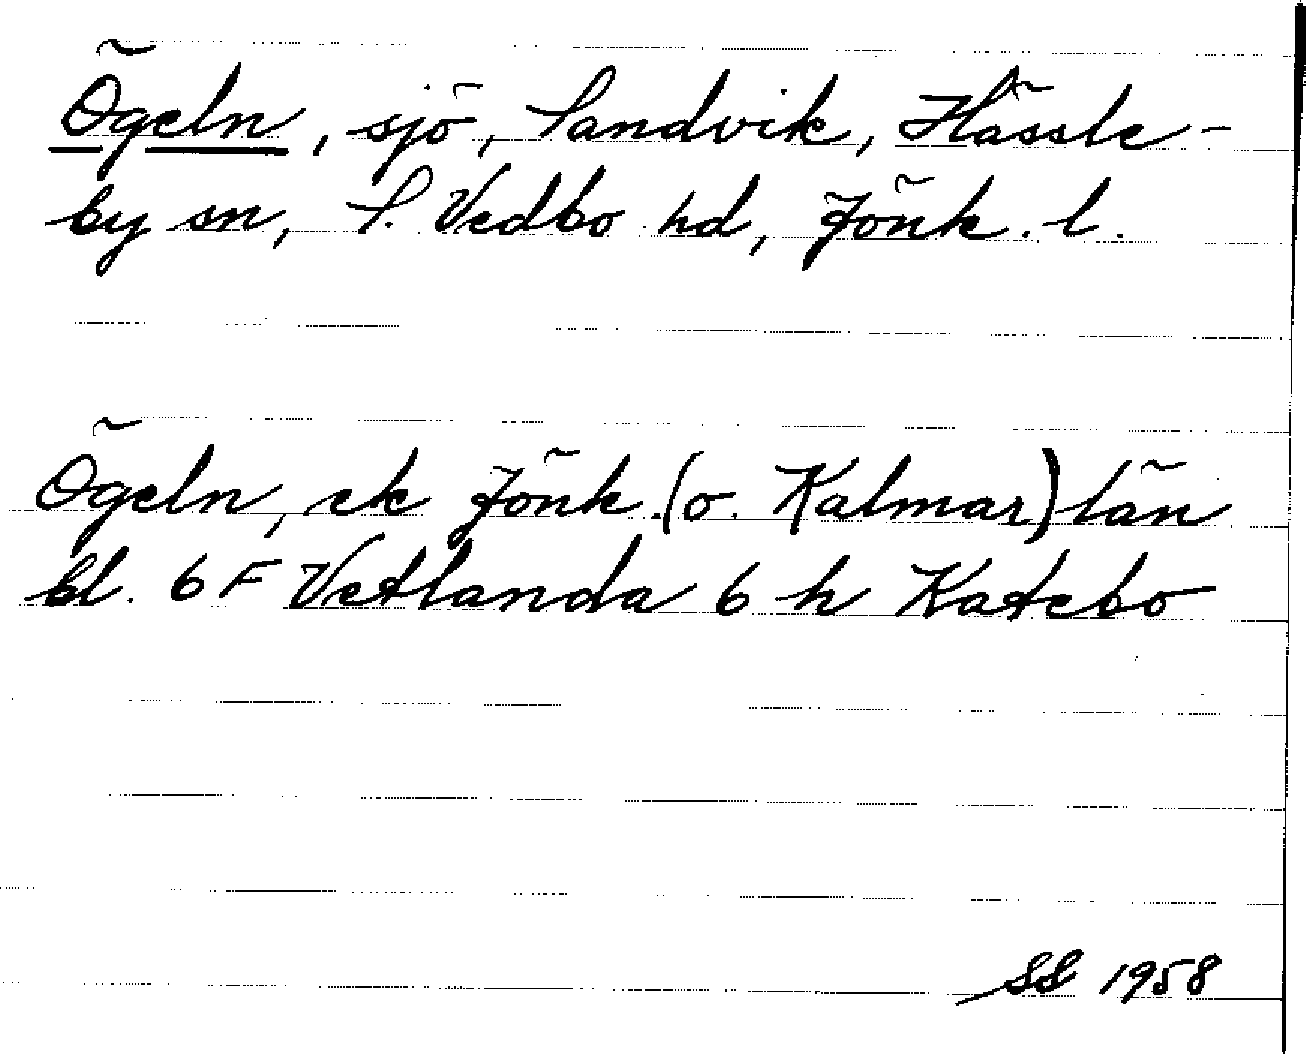 Ögeln, sjö, Sandvik, Hässle-
by sn, S. Vedbo hd, Jönk. l.
Ögeln, ek Jönk. (o. Kalmar) län
bl. 6 F Vetlanda 6 h Katebo
SS 1958